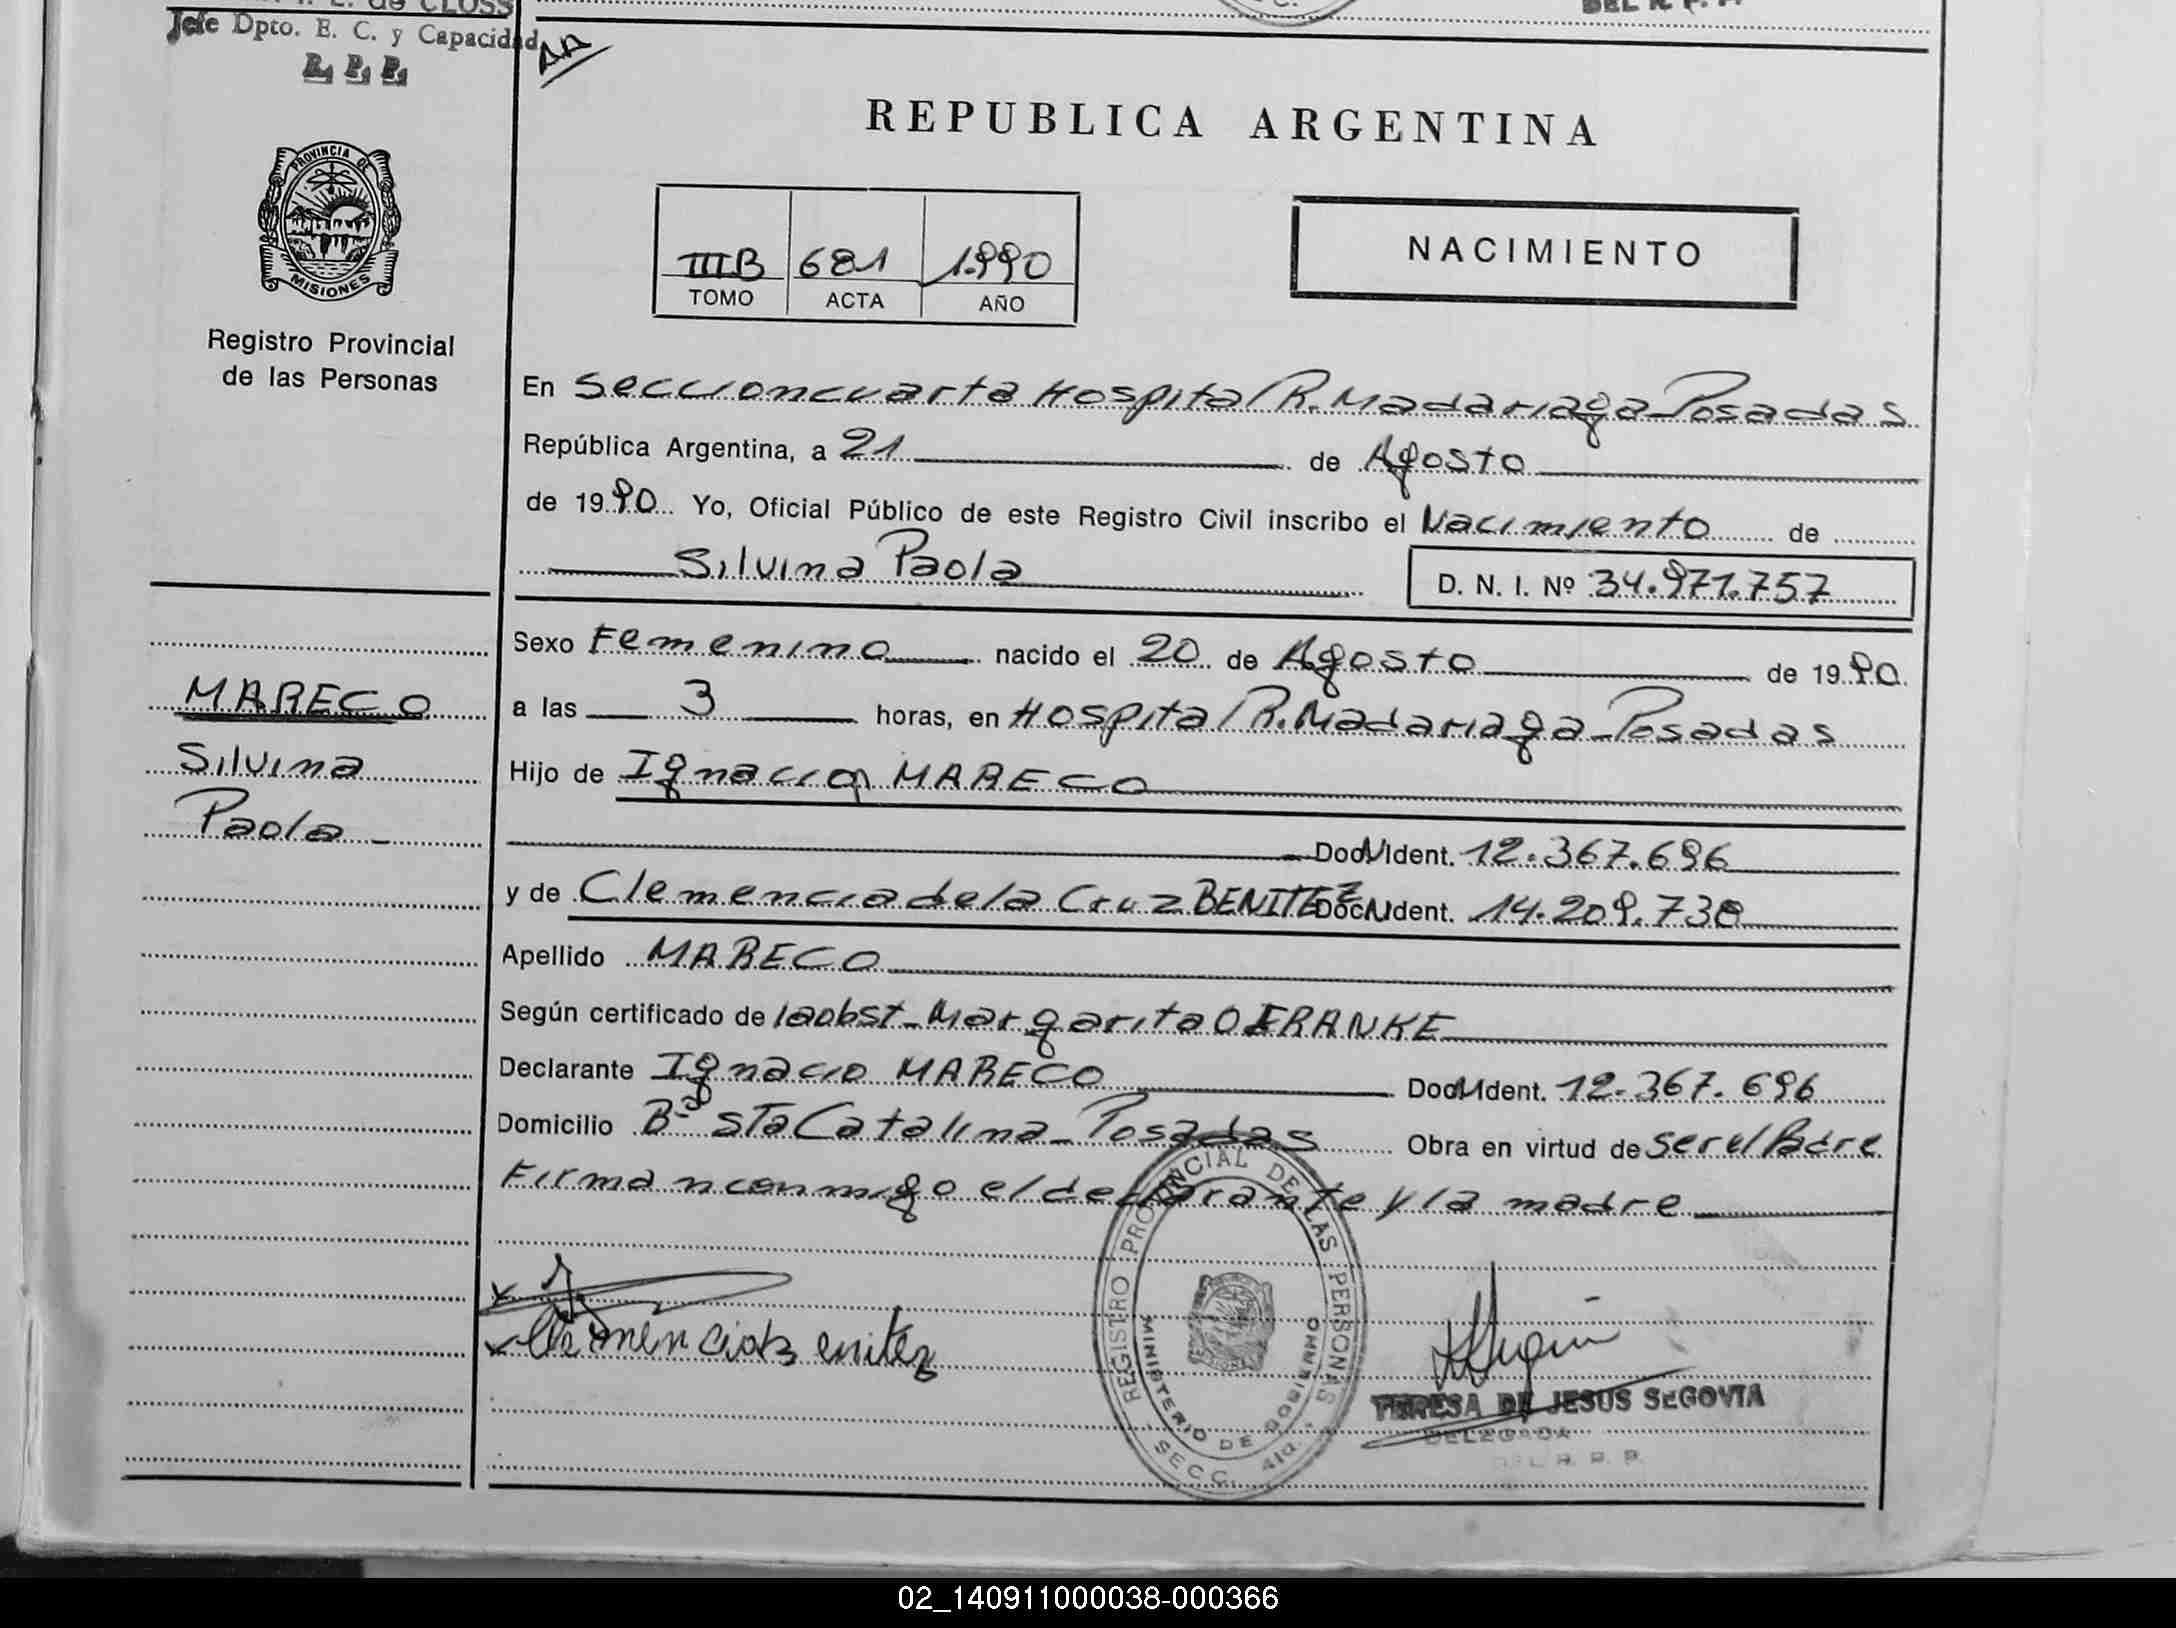 de CLOSS
Jefe Dpto. E. C. y Capacidad
R. P. P.
DEL R. P. P.
REPUBLICA ARGENTINA
PROVINCIA DE
MISIONES
Registro Provincial
de las Personas
III B 681 1.990
TOMO ACTA AÑO
NACIMIENTO
En Seccion cuarta Hospital R. Madariaga - Posadas
República Argentina, a 21 de Agosto
de 1990 Yo, Oficial Público de este Registro Civil inscribo el Nacimiento de
Silvina Paola
D. N. I. Nº 34.971.757
MARECO
Silvina
Paola -
Sexo Femenino nacido el 20 de Agosto de 1990
a las 3 horas, en Hospital R. Madariaga - Posadas
Hijo de Ignacio MARECO
Doc N Ident. 12.367.696
y de Clemencia de la Cruz BENITEZ Doc N Ident. 14.209.738
Apellido MARECO
Según certificado de la obst - Margarita O FRANKE
Declarante Ignacio MARECO Doc N Ident. 12.367.696
Domicilio Bº Sta Catalina - Posadas Obra en virtud de ser el Padre
Firman conmigo el declarante y la madre
Clemencia Benitez
REGISTRO PROVINCIAL DE LAS PERSONAS
MINISTERIO DE GOBIERNO
SECC. 4ta.
TERESA DE JESUS SEGOVIA
DELEGADA
DEL R. P. P.
02_140911000038-000366